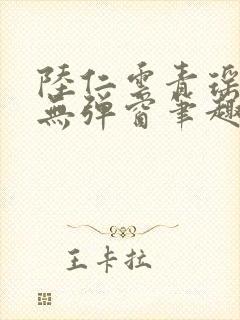 陸仁雲青瑶
無彈窗筆趣
王卡拉